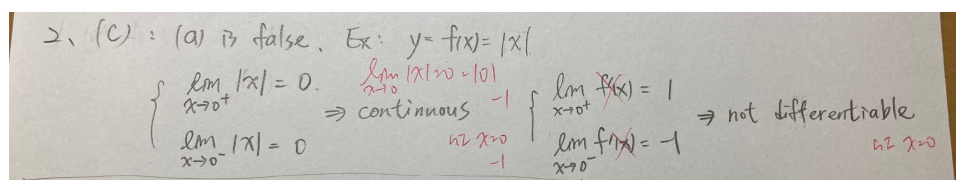 2、(C) : (a) is false. Ex: y = f(x) = |x|
lim x→0⁺ |x| = 0.
lim x→0⁻ |x| = 0
lim x→0 |x| = 0 = |0|
⇒ continuous -1
at x=0
-1
lim x→0⁺ f'(x) = 1
lim x→0⁻ f'(x) = -1
⇒ not differentiable
at x=0